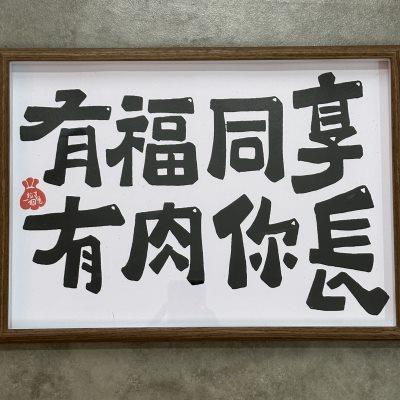 有福同享
有肉你長